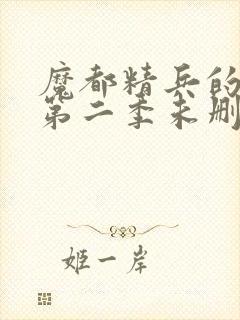 魔都精兵的
第二季未删
姬一岸